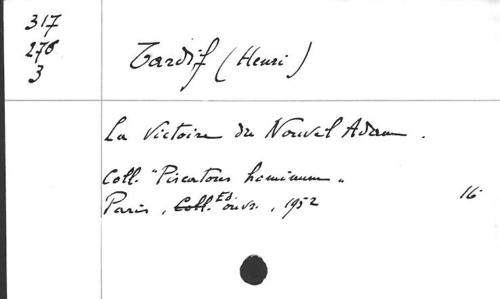 317
278
3
Tardif (Henri)
La Victoire du Nouvel Adam.
Coll. "Piscatores hominum"
Paris, Coll. Ed. ouvr., 1952
16